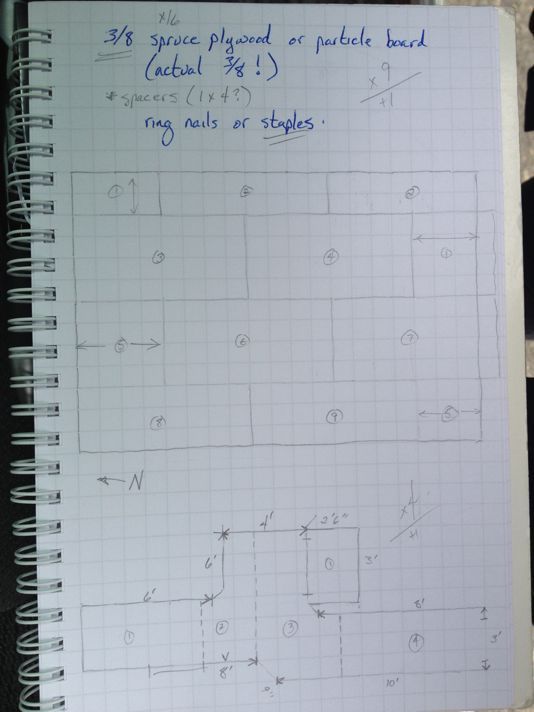 x16
3/8 spruce plywood or particle board
(actual 3/8 !)
x 9
+1
* spacers (1 x 4?)
ring nails or staples.
① ② ②
③ ④ ①
⑤ ⑥ ⑦
⑧ ⑨ ⑤
← N
4' 2'6"
x4
+1
6' ① 3'
6' 8'
① ② ③ ④ 3'
8'
10'